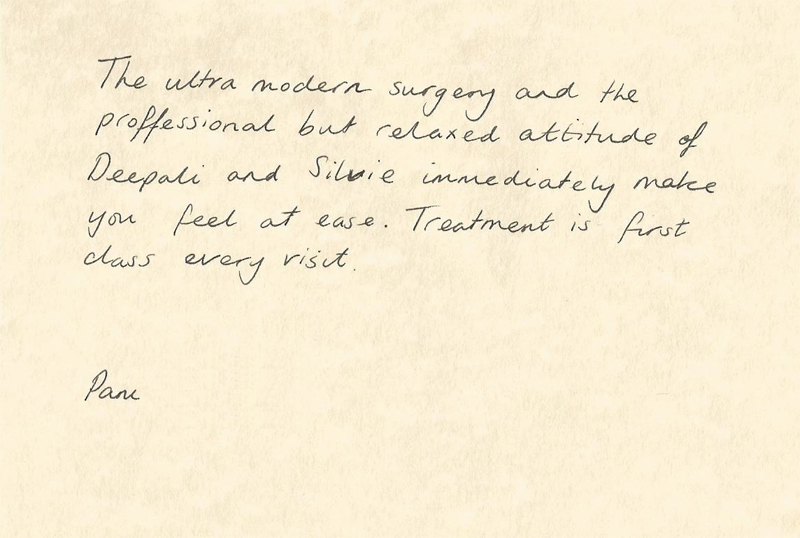 The ultra modern surgery and the
proffessional but relaxed attitude of
Deepali and Silvie immediately make
you feel at ease. Treatment is first
class every visit.